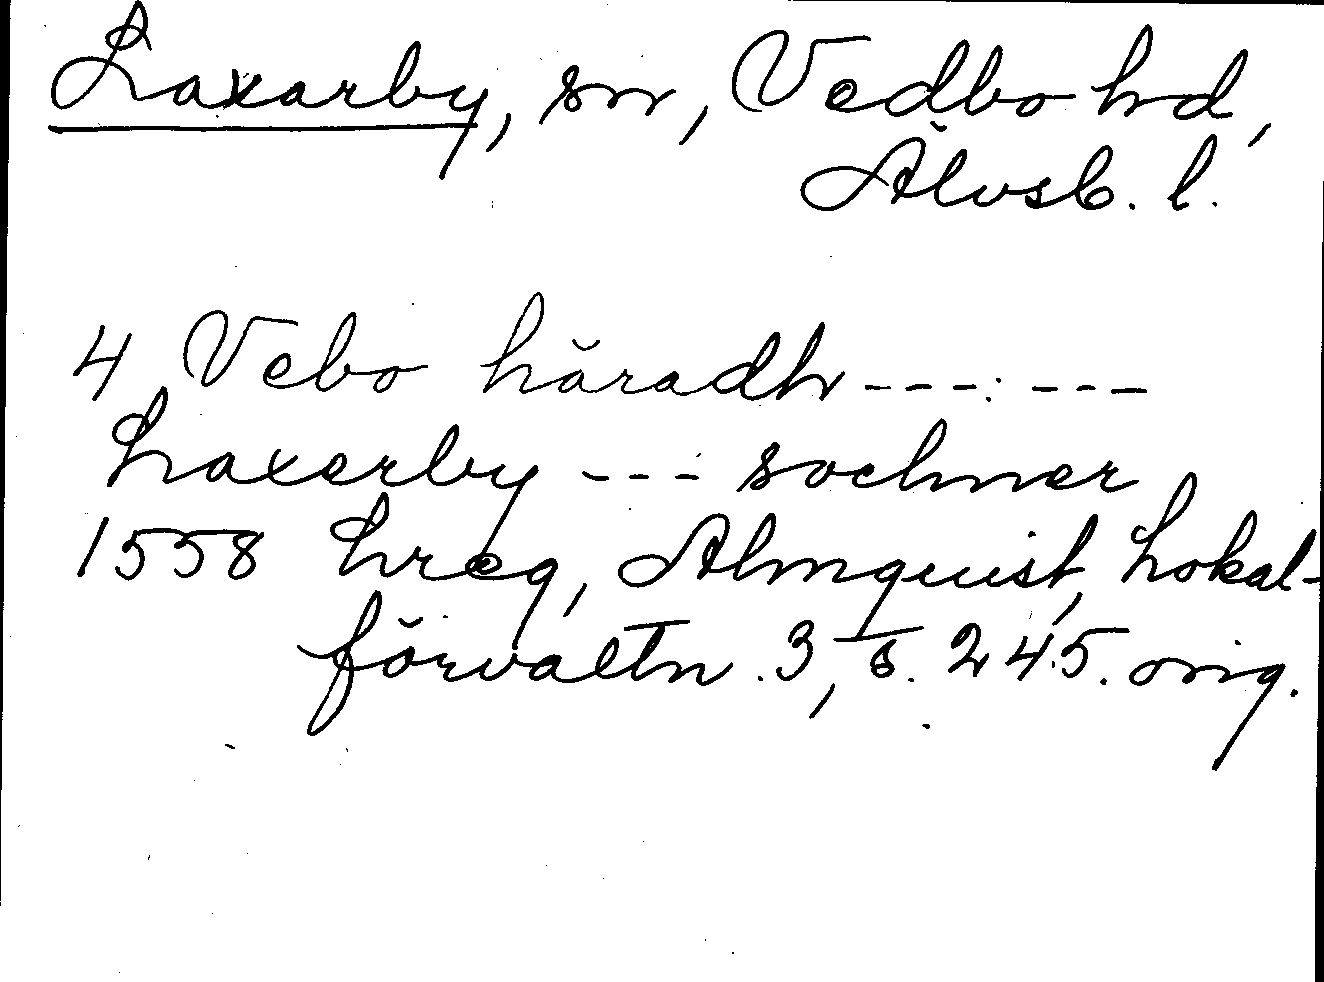 Laxarby, sn, Vedbo hd,
Älvsb. l.
4 Vebo häradh --- ---
Laxerby --- sochner
1558 Lreg, Almquist, Lokal-
förvaltn. 3, s. 245. orig.